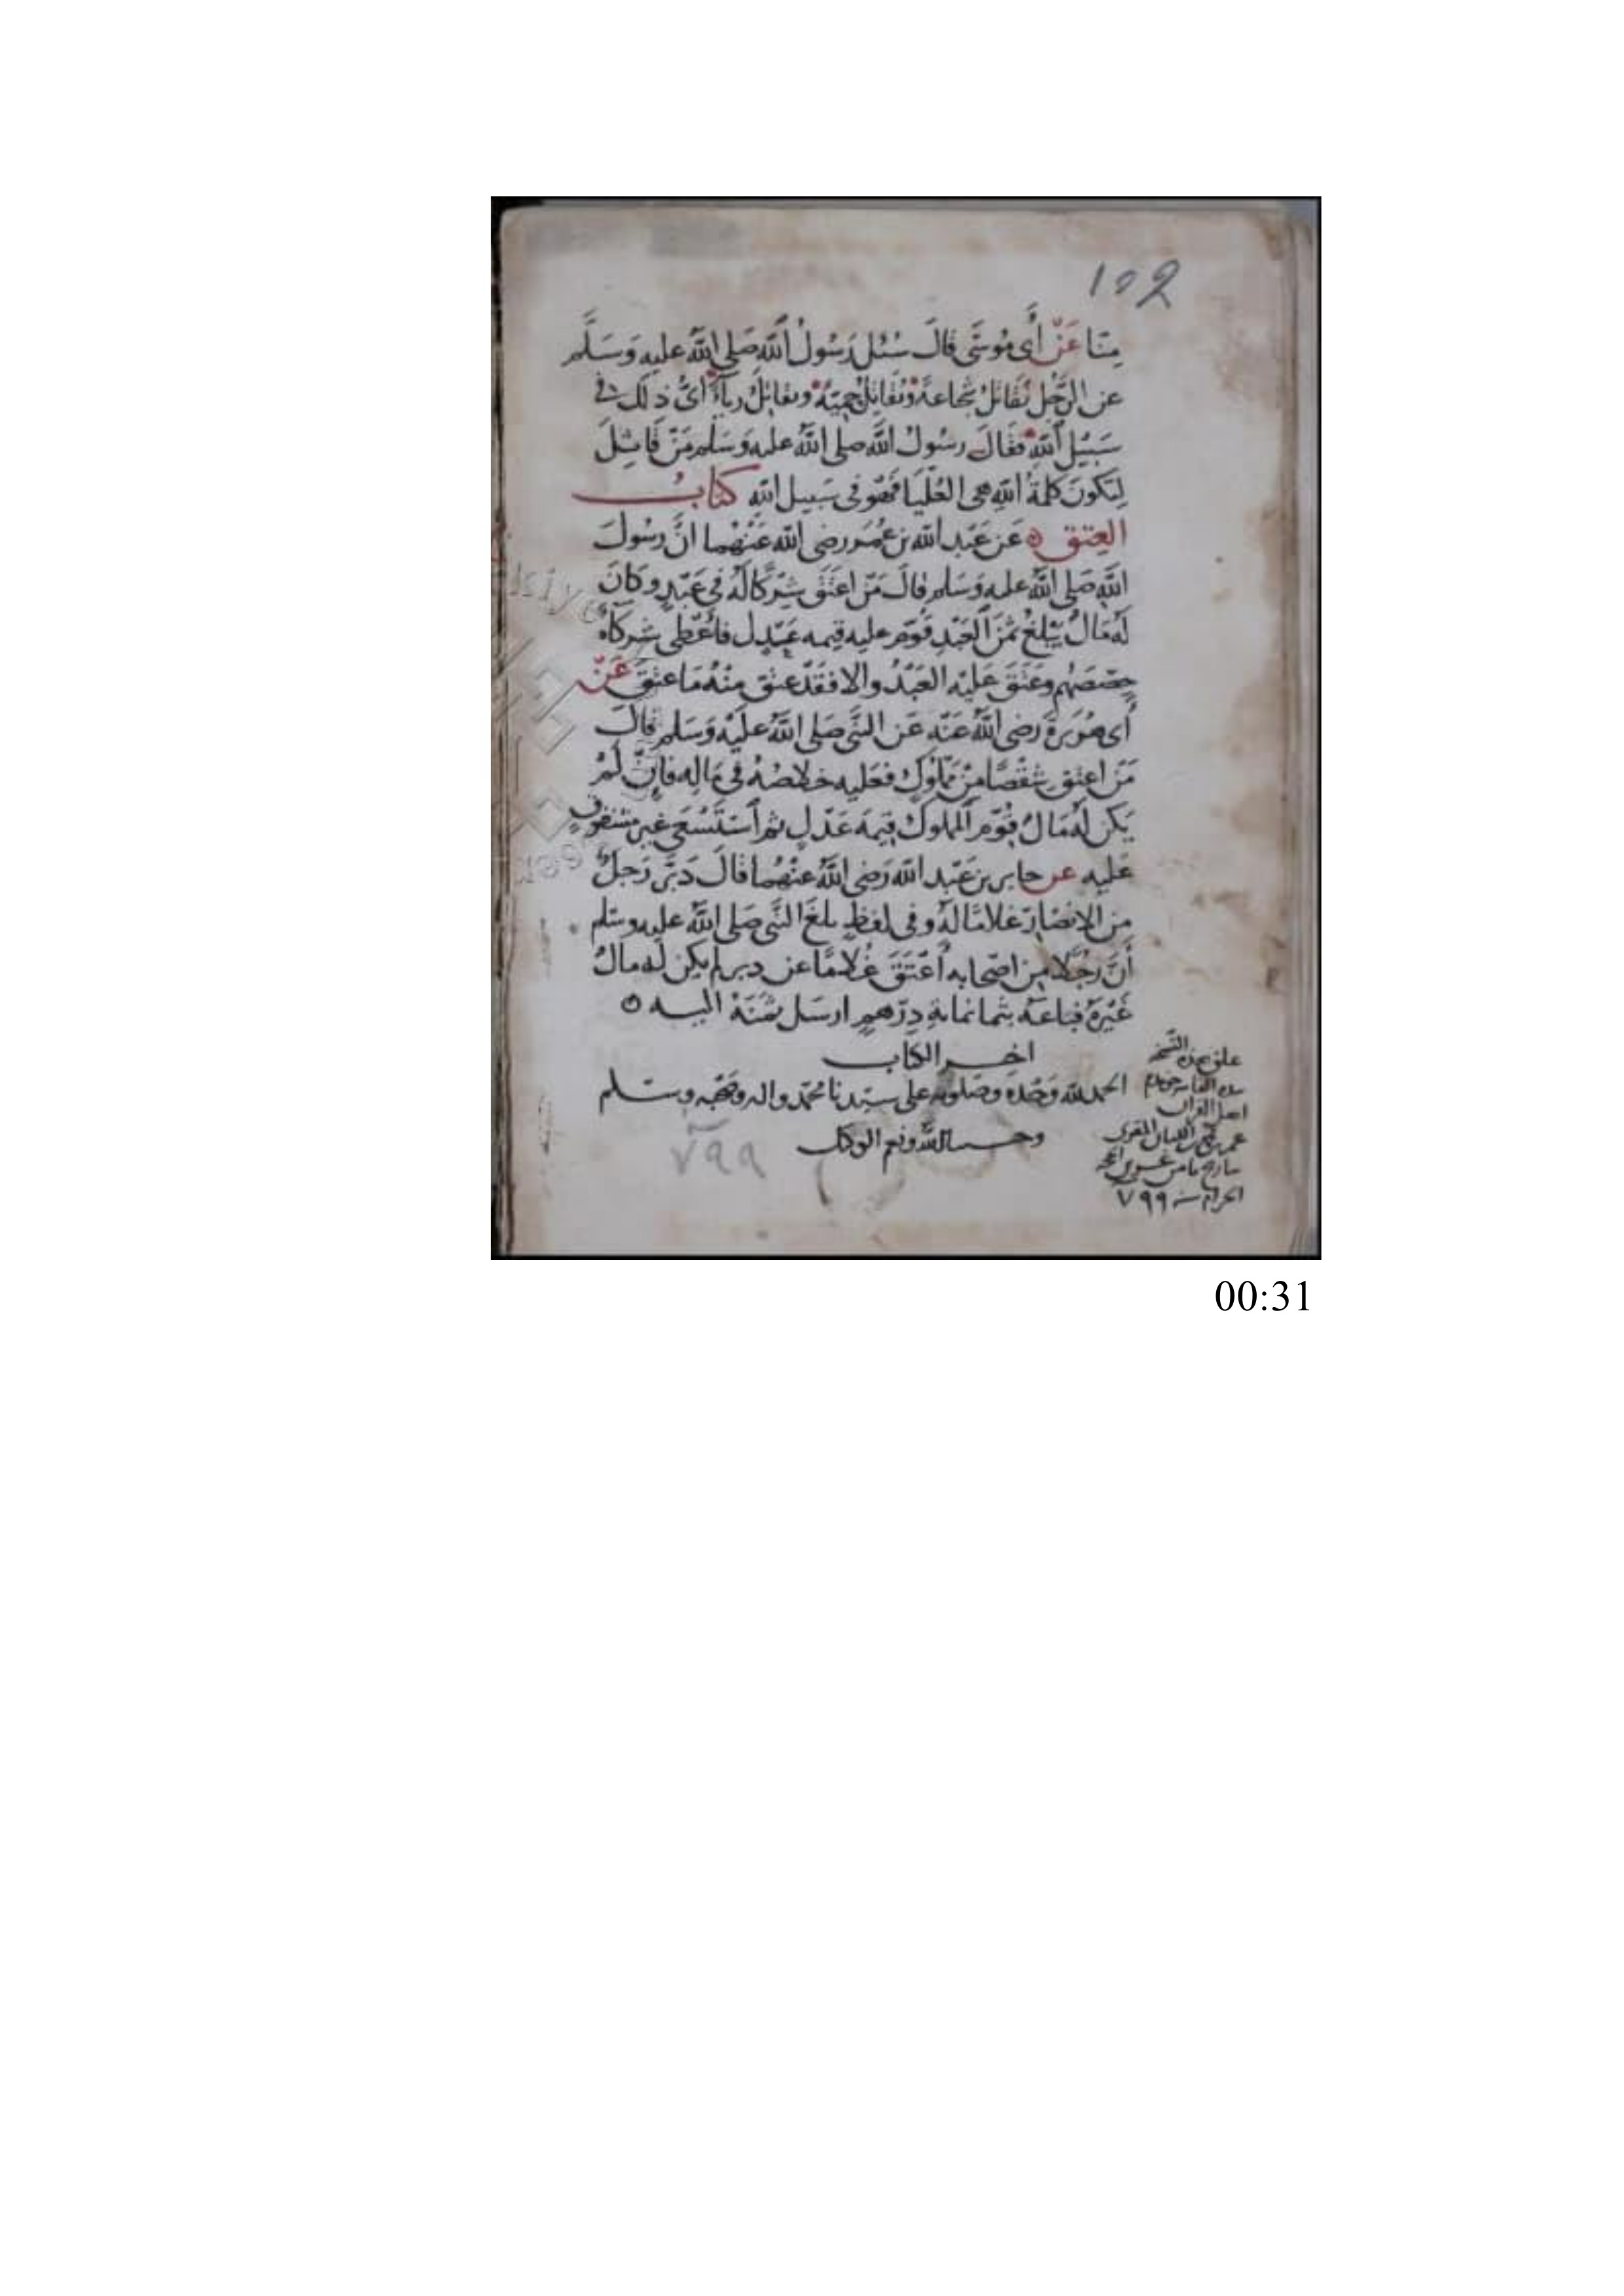 102
منا عن أبي موسى قال سئل رسول الله صلى الله عليه وسلم
عن الرجل يقاتل شجاعة ويقاتل حمية ويقاتل رياء أي ذلك في
سبيل الله فقال رسول الله صلى الله عليه وسلم من قاتل
لتكون كلمة الله هي العليا فهو في سبيل الله كتاب
العتق عن عبد الله بن عمر رضي الله عنهما ان رسول
الله صلى الله عليه وسلم قال من اعتق شركا له في عبد وكان
له مال يبلغ ثمن العبد قوم عليه قيمه عدل فأعطى شركاه
حصصهم وعتق عليه العبد والا فقد عتق منه ما عتق عن
أبي هريرة رضي الله عنه عن النبي صلى الله عليه وسلم قال
من اعتق شقصا من مملوك فعليه خلاصه في ماله فإن لم
يكن له مال قوم المملوك قيمه عدل ثم استسعى غير مشقوق
عليه عن جابر بن عبد الله رضي الله عنهما قال دبر رجل
من الانصار غلاما له وفي لفظ بلغ النبي صلى الله عليه وسلم
أن رجلا من اصحابه أعتق غلاما عن دبر لم يكن له مال
غيره فباعه بثمانماية درهم ارسل بثمنه اليه
اخر الكتاب
الحمد لله وحده وصلوته على سيدنا محمد واله وصحبه وسلم
وحسبنا الله ونعم الوكيل
٧٩٩
علق هذه النسخه
اهل القران
المقرى
الحرام سنه ٧٩٩
00:31